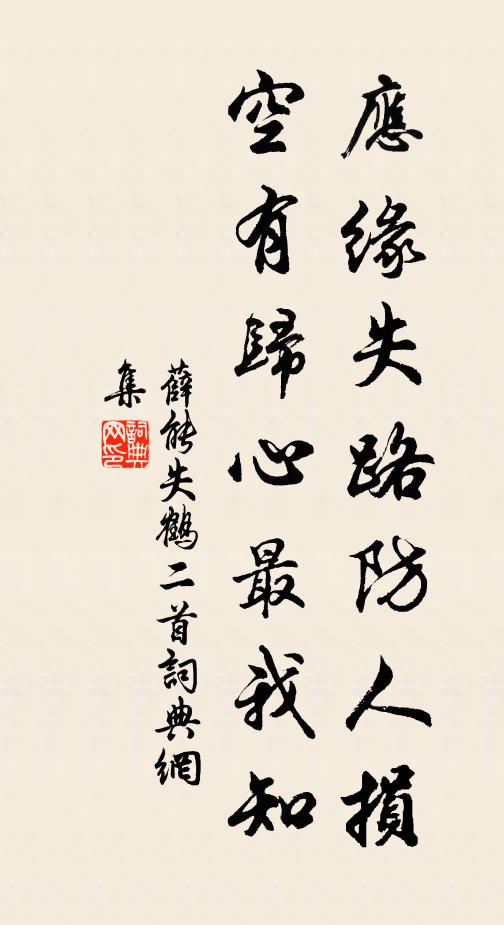 應緣失路防人損
空有歸心最我知
薛能失鶴二首詞典網
集
詞典
网印